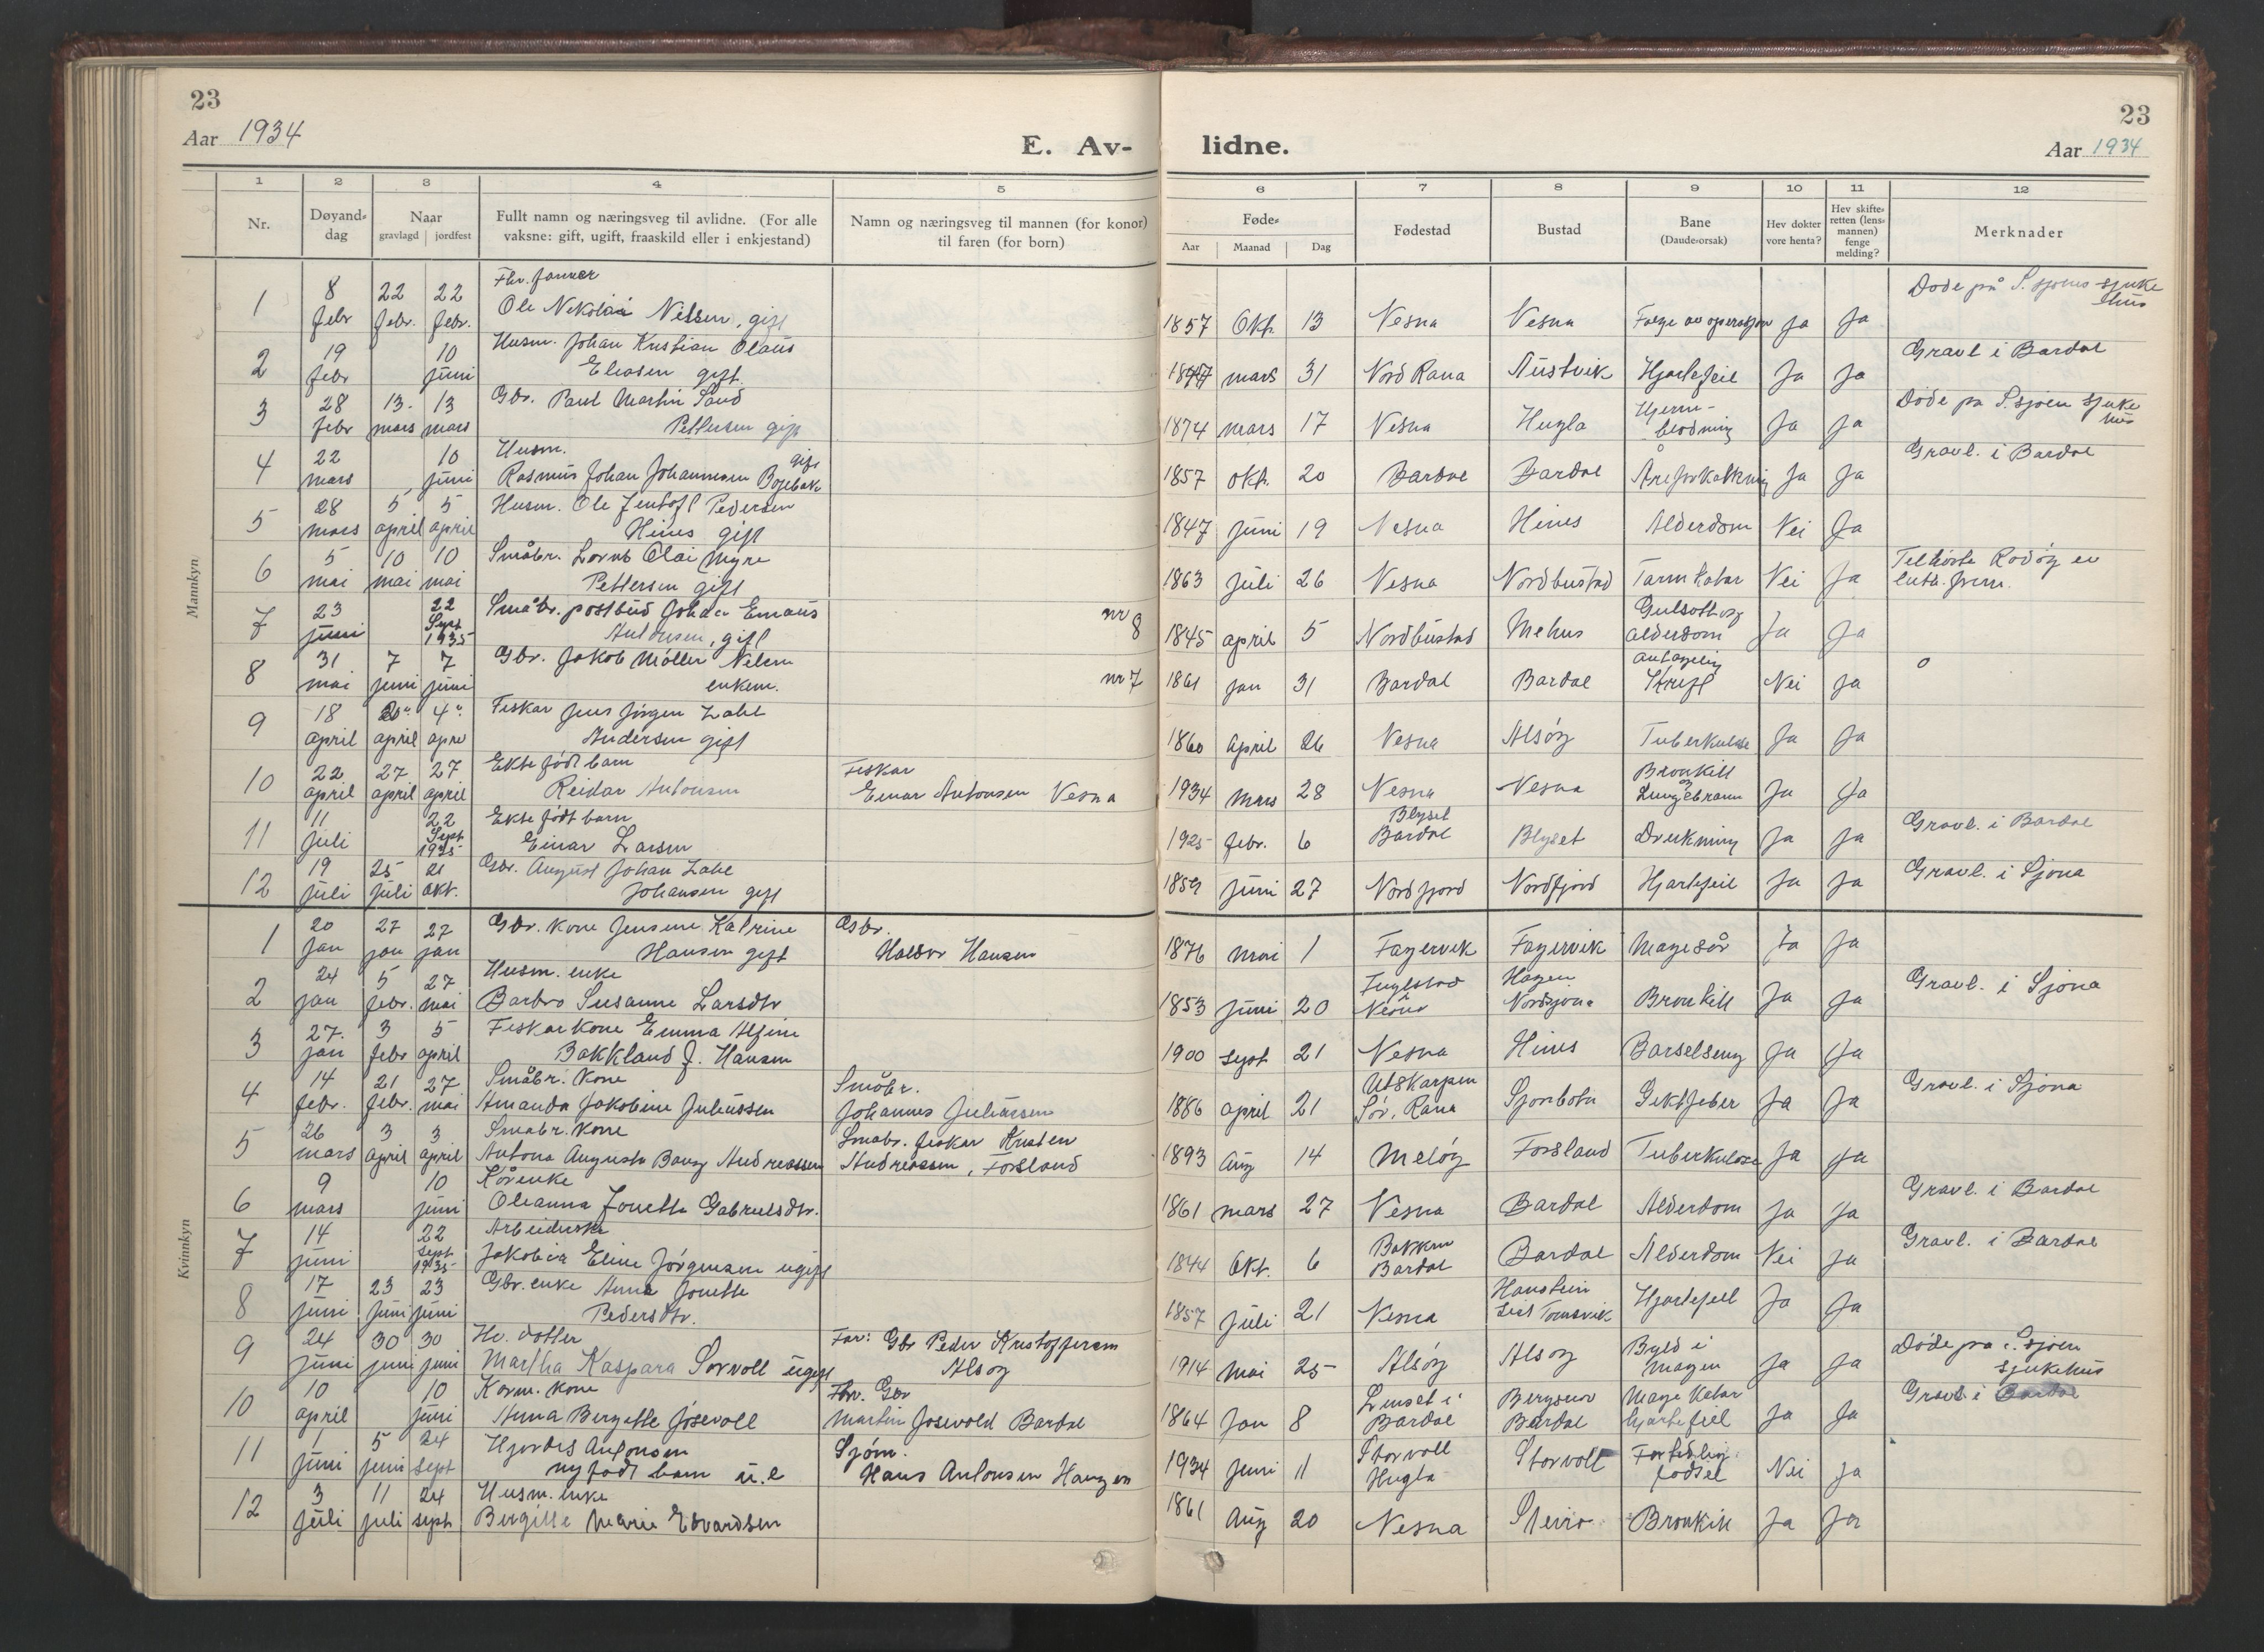 23
Aar 1934
E. Av-
lidne.
23
Aar 1934
1 2 3 4 5 6 7 8 9 10 11 12
Nr.
Døyand-
dag
Naar
gravlagd | jordfest
Fullt namn og næringsveg til avlidne. (For alle
vaksne: gift, ugift, fraaskild eller i enkjestand)
Namn og næringsveg til mannen (for konor)
til faren (for born)
Føde-
Aar Maanad Dag
Fødestad
Bustad
Bane
(Daude-orsak)
Hev dokter
vore henta?
Hev skifte-
retten (lens-
mannen)
fenge
melding?
Merknader
Mannkyn
1 8 febr 22 febr. 22 febr. Fhv.
Ole Nikolai Nilsen, gift 1857 Okt. 13 Nesna Nesna Følge av operasjon Ja Ja Døde på S.sjøens sjukehus
2 19 febr 10 juni Husm. Johan Kristian Olaus
Eliasen gift. mars 31 Nord Rana Austvik Hjartefeil Ja Ja Gravl i Bardal
3 28 febr 13. mars 13 mars Gbr. Paul Martin
Pettersen gift 1874 mars 17 Nesna Hugla Hjerne-
blødning Ja Ja Døde på S.sjøen sjukehus
4 22 mars 10 juni Husm.
Rasmus Johan Johannesen gift 1857 okt. 20 Bardal Bardal Åreforkalkning Ja Ja Gravl. i Bardal
5 28 mars 5 april 5 april Husm. Ole Zentoft Pedersen
Hines gift 1847 juni 19 Nesna Hines Alderdom Nei Ja
6 5 mai 10 mai 10 mai Småbr. Olai Myre
Pettersen gift 1863 juli 26 Nesna Nordbustad Tarmkatar Nei Ja Tilhørte Rødøy ev
luth. frim.
7 23 juni 22 Sept 1935 Småbr. postbud Johan Emaus
Antonsen, gift nr 8 1845 april 5 Nordbustad Mehus Gulsott og
alderdom Ja Ja
8 31 mai 7 juni 7 juni Gbr. Jakob Møller Nilsen
enkem. nr 7 1861 jan 31 Bardal Bardal antagelig
Kreft Nei Ja
9 18 april april 4 Fiskar Jens Jørgen Zahl
Andersen gift 1860 april 26 Nesna Alsøy Tuberkulose Ja Ja
10 22 april 27 april 27 april Ekte født barn
Reidar Antonsen Fiskar
Einar Antonsen Nesna 1934 Mars 28 Nesna Nesna Bronkitt
Lungebrann Ja Ja
11 11 juli 22 Sept 1935 Ekte født barn
Einar Larsen 1925 febr. 6 Blyset
Bardal Blyset Drukning Ja Ja Gravl. i Bardal
12 19 juli 25 juli 21 okt. Gbr. August Johan Zahl
Johansen gift 1859 juni 27 Nordfjord Nordfjord Hjartefeil Ja Ja Gravl. i Sjona
Kvinnkyn
1 20 jan 27 jan 27 jan Gbr. kone Jensine Katrine
Hansen gift Gbr.
Halvor Hansen 1876 mai 1 Fagervik Fagervik Magesår Ja Ja
2 24 jan 5 febr. 27 mai Husm. enke
Barbro Susanne Larsdtr 1853 juni 20 Fuglstad
Hagen
Nordsjona Bronkitt Ja Ja Gravl. i Sjona
3 27. jan 3 febr 5 april Fiskarkone Emma Alfine
Bakkland f. Hansen 1900 sept 21 Nesna Hines Barselseng Ja Ja
4 14 febr. 21 febr. 27 mai Småbr. kone
Amanda Jakobine Juliussen Småbr.
Johannes Juliussen 1886 april 21 Utskarpen
Sør. Rana Sjonbotn Giktfeber Ja Ja Gravl. i Sjona
5 26 mars 3 april 3 april Småbr. kone
Antona Augusta Bang Andreassen Småbr. fiskar Kristen
Andreassen, Forsland 1893 Aug 14 Meløy Forsland Tuberkulose Ja Ja
6 9 mars 10 juni enke
Oleanna Jonette Gabrielsdtr. 1861 mars 27 Nesna Bardal Alderdom Ja Ja Gravl. i Bardal
7 14 juni 22 sept 1935 Arbeiderske
Jakobina Eline Jørgensen ugift 1844 Okt. 6 Bakken
Bardal Bardal Alderdom Nei Ja Gravl. i Bardal
8 17 juni 23 juni 23 juni Gbr. enke Anna Jonette
Pedersdtr. 1857 juli 21 Nesna Haustein
Tomsvik Hjartefeil Ja Ja
9 24 juni 30 juni 30 juni Hv. dotter
Martha Kaspara Sørvoll ugift Far: Gbr Peder Kristoffersen
Alsøy 1914 Mai 25 Alsøy Alsøy Byld i
magen Ja Ja Døde på S.sjøen
sjukehus
10 10 april 10 juni Kårm. kone
Anna Bergitte Jósevoll Fhv. Gbr
Martin Josevold Bardal 1864 Jan 8 i
Bardal
Bardal Mage Katar
hjartefeil Ja Ja Gravl. i Bardal
11 1 juni 5 juni 24 sept Hjørdis Antonsen
nyfødt barn u.e Sjøm.
Hans Antonsen Haugen 1934 juni 11 Storvoll
Hugla Storvoll For tidlig
fødsel Nei Ja
12 3 juli 11 juli 24 sept Husm. enke
Bergitte Marie Edvardsen 1861 Aug 20 Nesna Steiro Bronkitt Ja Ja